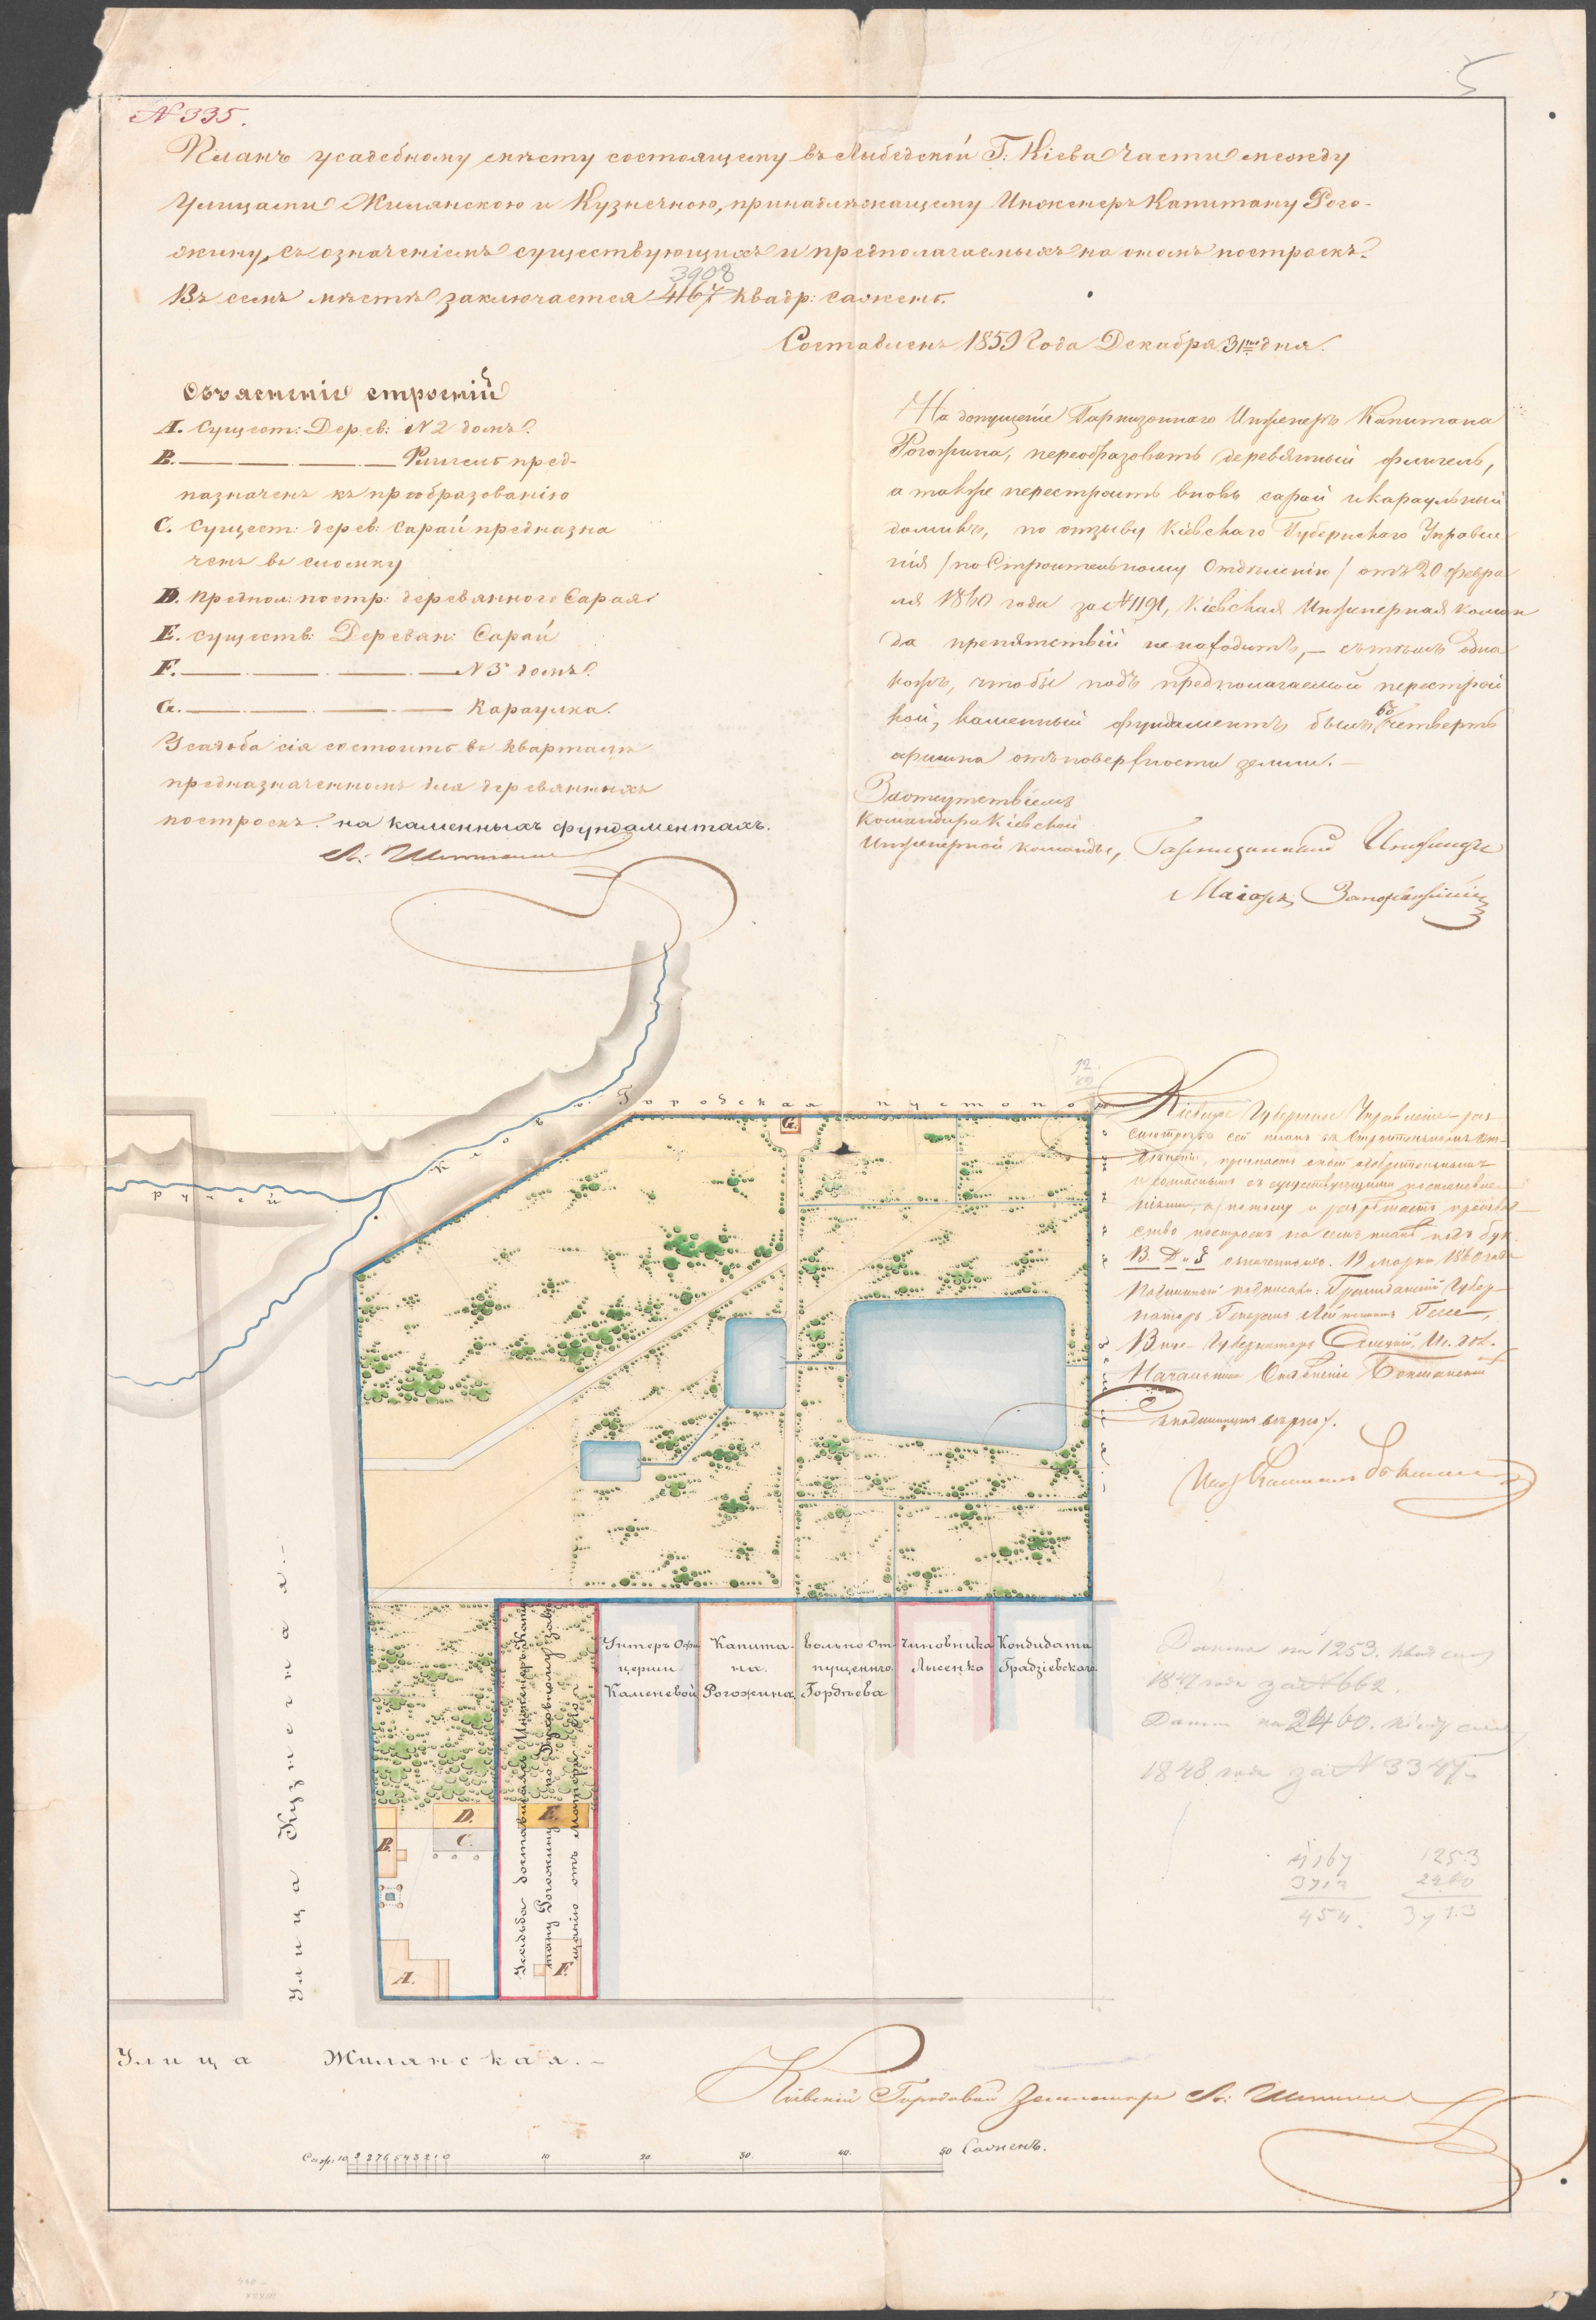 № 335.
Планъ усадебному мѣсту состоящему въ Лыбедской Г: Кіева части между
Улицами Жилянскою и Кузнечною, принадлежащему Инженеръ Капитану Рого-
жину, съ означеніемъ существующихъ и предполагаемыхъ на ономъ построекъ.
3908
Въ семъ мѣстѣ заключается 4167 квадр: сажень.
Составленъ 1859 Года Декабря 31го дня.
Объясненіе строеній
A. Сущест: Дерев: № 2 домъ.
B. Флигель пред-
назначенъ къ преобразованію
C. Сущест: дерев: Сарай предназна
ченъ въ сломку
D. Предпол: постр: деревяннаго Сарая
E. Существ: Деревян: Сарай
F. № 3 домъ.
G. Караулка.
Усадьба сія состоитъ въ кварталѣ
предназначенномъ для деревянныхъ
построекъ. на каменныхъ фундаментахъ.
На допущеніе Гарнизоннаго Инженеръ Капитана
Рогожина, переобразовать деревянный флигель,
а также перестроить вновь сарай и караульный
домикъ, по отзыву Кіевскаго Губернскаго Управле
нія /по Строительному Отдѣленію/ отъ 20 февра
ля 1860 года за № 1191, Кіевская Инженерная коман
да препятствій не находитъ, — съ тѣмъ одна
кожъ, чтобы подъ предполагаемой перестрой
кой, каменный фундаментъ былъ въ четверть
аршина отъ поверхности земли. —
За отсутствіемъ
Командира Кіевской
Инженерной команды, Гарнизонный Инженеръ
Маіоръ
Городская пустопо
Ручей
Кловъ
G.
Кіевское Губернское Управленіе раз
смотрѣвъ сей планъ въ Строительномъ От-
дѣленіи,
и согласнымъ съ существующими
а потому и разрѣшаетъ производ
ство построекъ на семъ планѣ подъ бук.
B. D и G означенныхъ. 19 марта 1860 года
Подлинный подписали: Гражданскій Губер-
наторъ Генералъ Лейтенантъ Гессе,
Вице-Губернаторъ
Начальника Отдѣленія
съ подлиннымъ вѣрно:
Унтеръ Офи
церши
Каменевой
Капита-
на
Рогожина
Вольно От-
пущеннаго
Гордѣева
Чиновника
Лысенко
Кондидата
Градзіевскаго
Усадьба доставшаяся Инженеръ Капи
тану Рогожину по Духовному завѣ
щанію отъ Матери Его
Улица Кузнечная.
D.
E.
B.
C.
A.
F.
на 1253. квад саж
1847 года за № 662.
на 2460.
1848 года за № 3347
4167 1253
3713 2460
454. 3713
Улица Жилянская.
Кіевскій Городовой Землемѣръ
Саж. 10 9 8 7 6 5 4 3 2 1 0 10 20 30 40 50 Сажень.